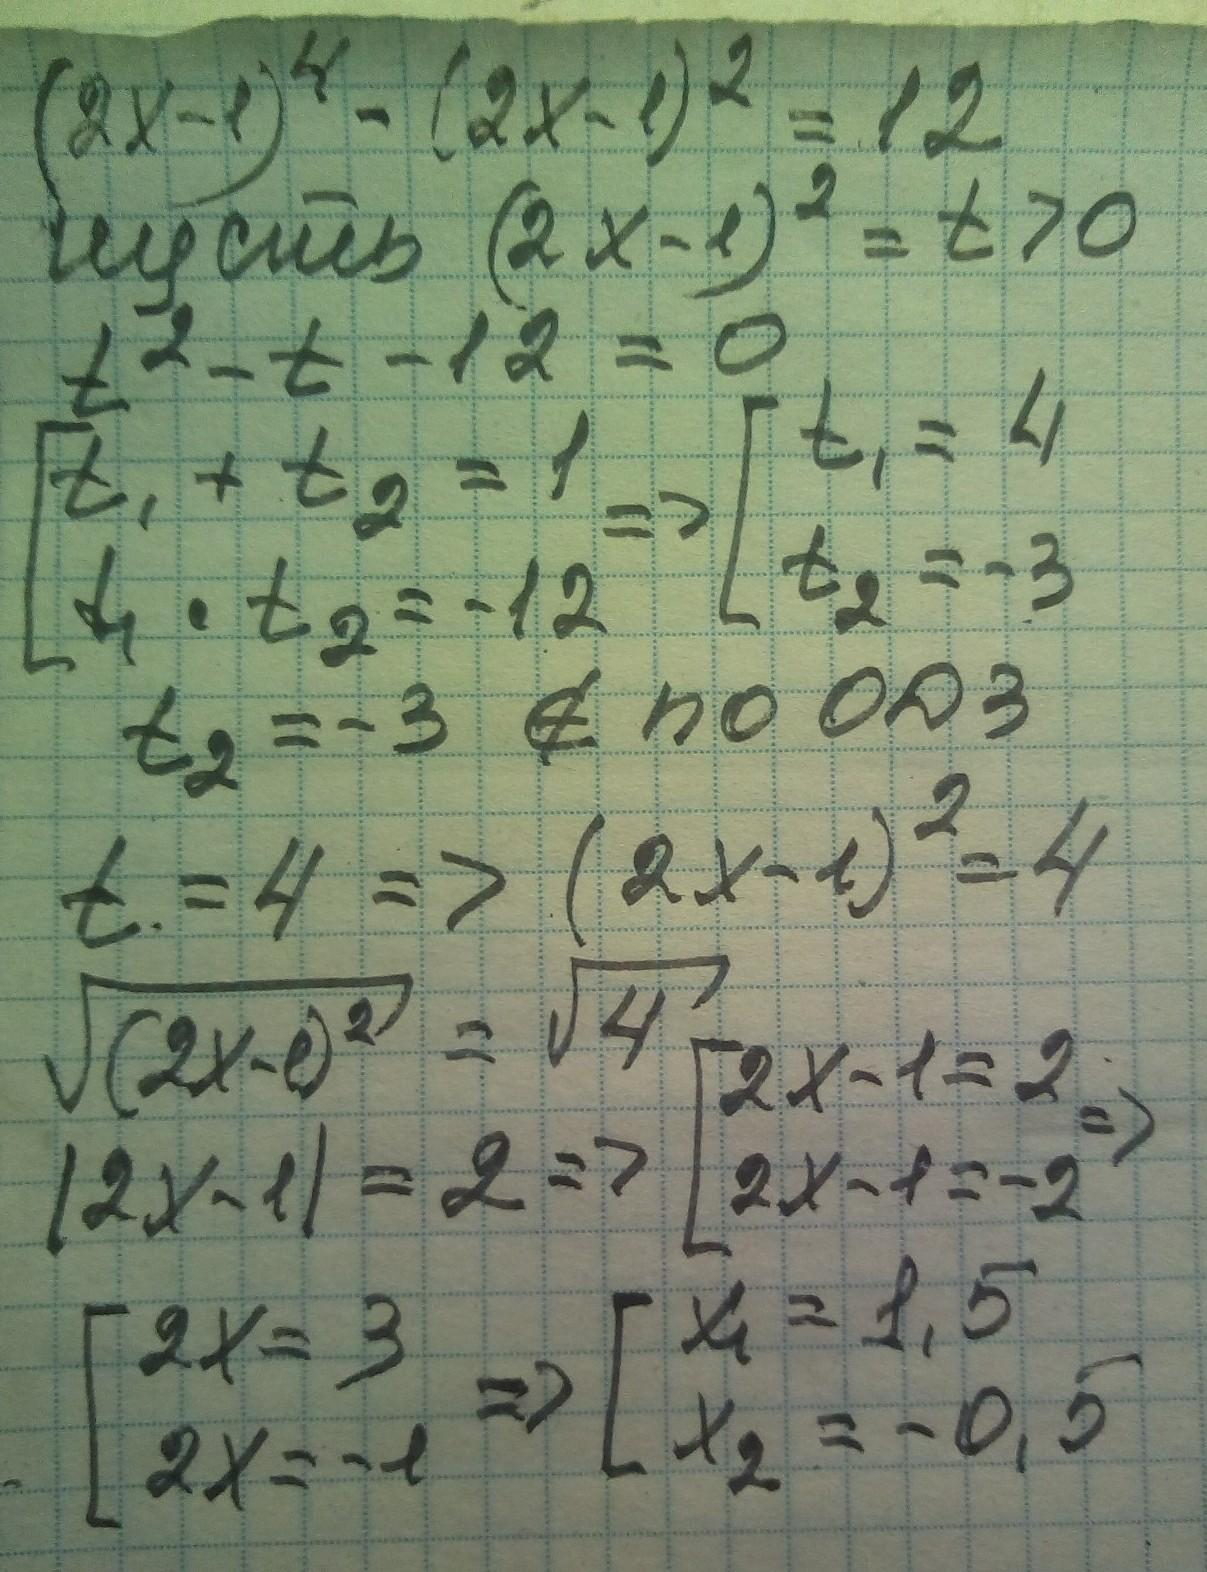 (2x-1)⁴ - (2x-1)² = 12
пусть (2x-1)² = t > 0
t² - t - 12 = 0
[ t₁ + t₂ = 1
t₁ · t₂ = -12 => [ t₁ = 4
t₂ = -3
t₂ = -3 ∉ по ОДЗ
t = 4 => (2x-1)² = 4
√(2x-1)² = √4
|2x-1| = 2 => [ 2x-1 = 2
2x-1 = -2 =>
[ 2x = 3
2x = -1 => [ x₁ = 1,5
x₂ = -0,5